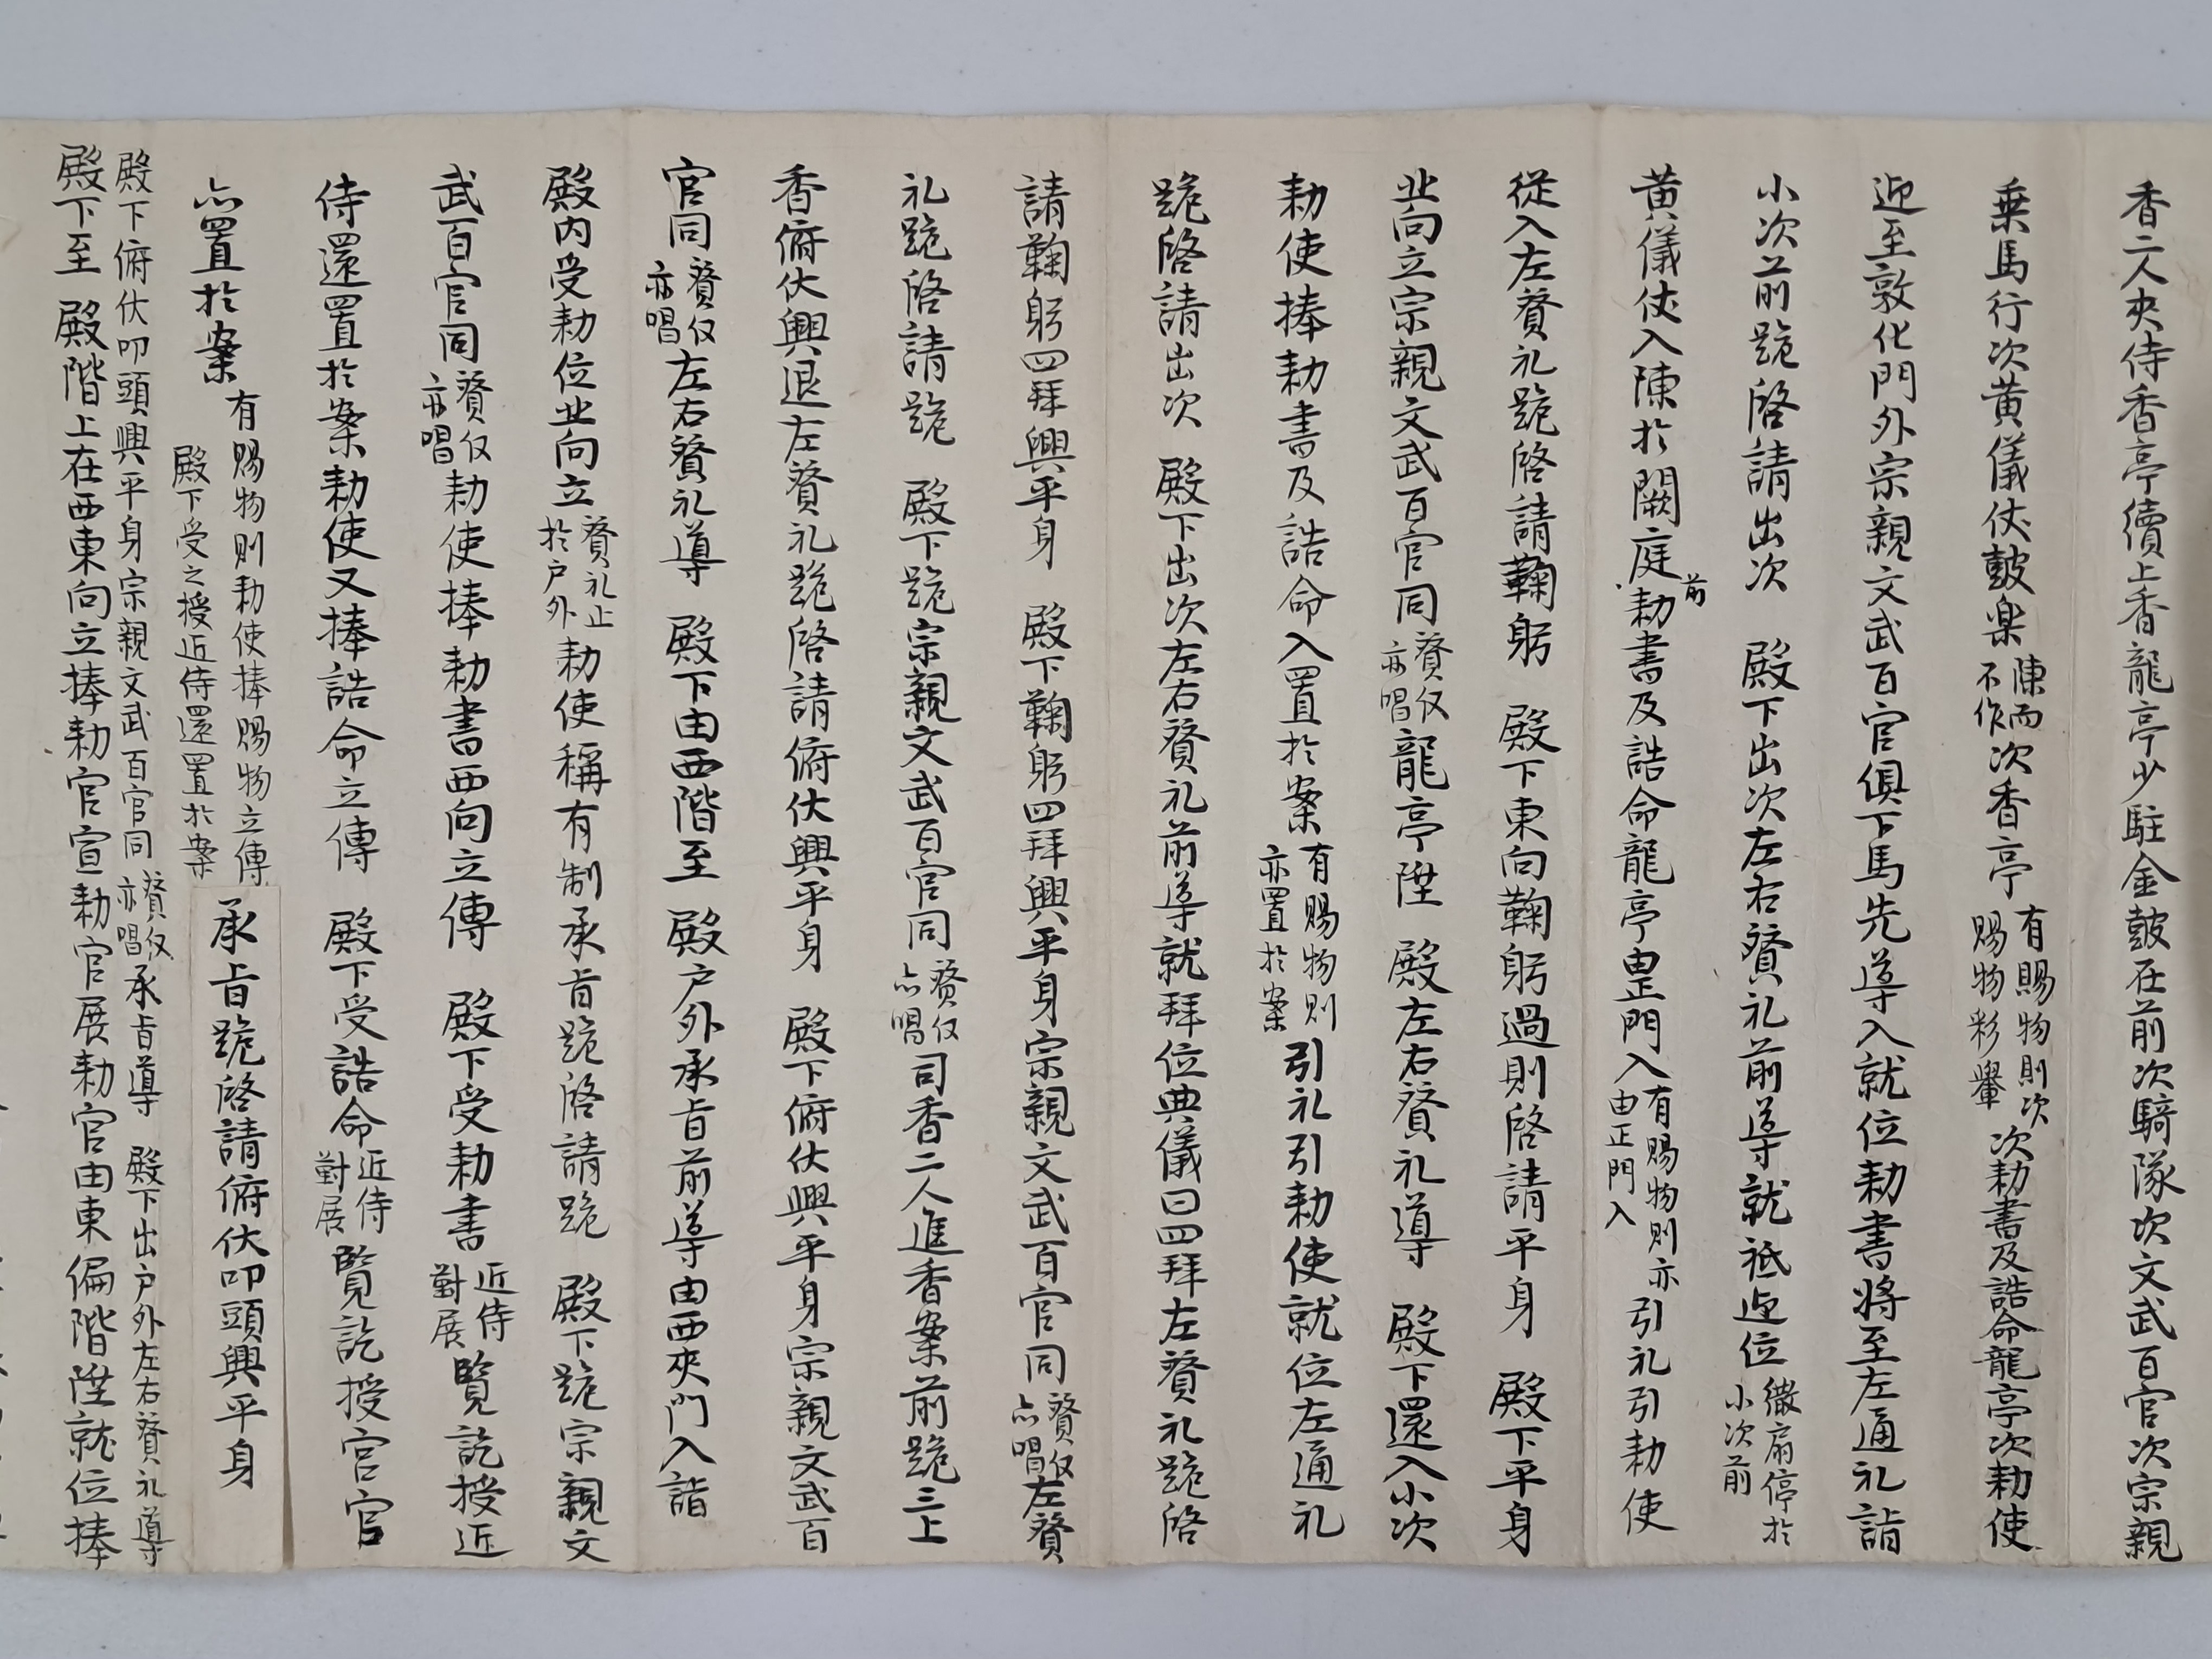 香二人夾侍香亭續上香龍亭少駐金鼓在前次騎隊次文武百官次宗親
乗馬行次黄儀仗皷楽陳而不作次香亭有賜物則次賜物彩轝次勅書及誥命龍亭次勅使
迎至敦化門外宗親文武百官俱下馬先導入就位勅書將至左通礼詣
小次前跪啓請出次 殿下出次左右賛礼前導就祗迎位繖扇停於小次前
黄儀仗入陳於闕庭前勅書及誥命龍亭由正門入有賜物則亦由正門入引礼引勅使
從入左賛礼跪啓請鞠躬 殿下東向鞠躬過則啓請平身 殿下平身
北向立宗親文武百官同賛仪亦唱龍亭陞 殿左右賛礼導 殿下還入小次
勅使捧勅書及誥命入置於案有賜物則亦置於案引礼引勅使就位左通礼
跪啓請出次 殿下出次左右賛礼前導就拜位典儀曰四拜左賛礼跪啓
請鞠躬四拜興平身 殿下鞠躬四拜興平身宗親文武百官同賛仪亦唱左賛
礼跪啓請跪 殿下跪宗親文武百官同賛仪亦唱司香二人進香案前跪三上
香俯伏興退左賛礼跪啓請俯伏興平身 殿下俯伏興平身宗親文武百
官同賛仪亦唱左右賛礼導 殿下由西階至 殿户外承旨前導由西夾門入詣
殿内受勅位北向立賛礼止於户外勅使稱有制承旨跪啓請跪 殿下跪宗親文
武百官同賛仪亦唱勅使捧勅書西向立傳 殿下受勅書近侍對展覽訖授近
侍還置於案勅使又捧誥命立傳 殿下受誥命近侍對展覽訖授官官
亦置於案有賜物則勅使捧賜物立傳殿下受之授近侍還置於案承旨跪啓請俯伏叩頭興平身
殿下俯伏叩頭興平身宗親文武百官同賛仪亦唱承旨導 殿下出户外左右賛礼導
殿下至 殿階上在西東向立捧勅官宣勅官展勅官由東偏階陞就位捧